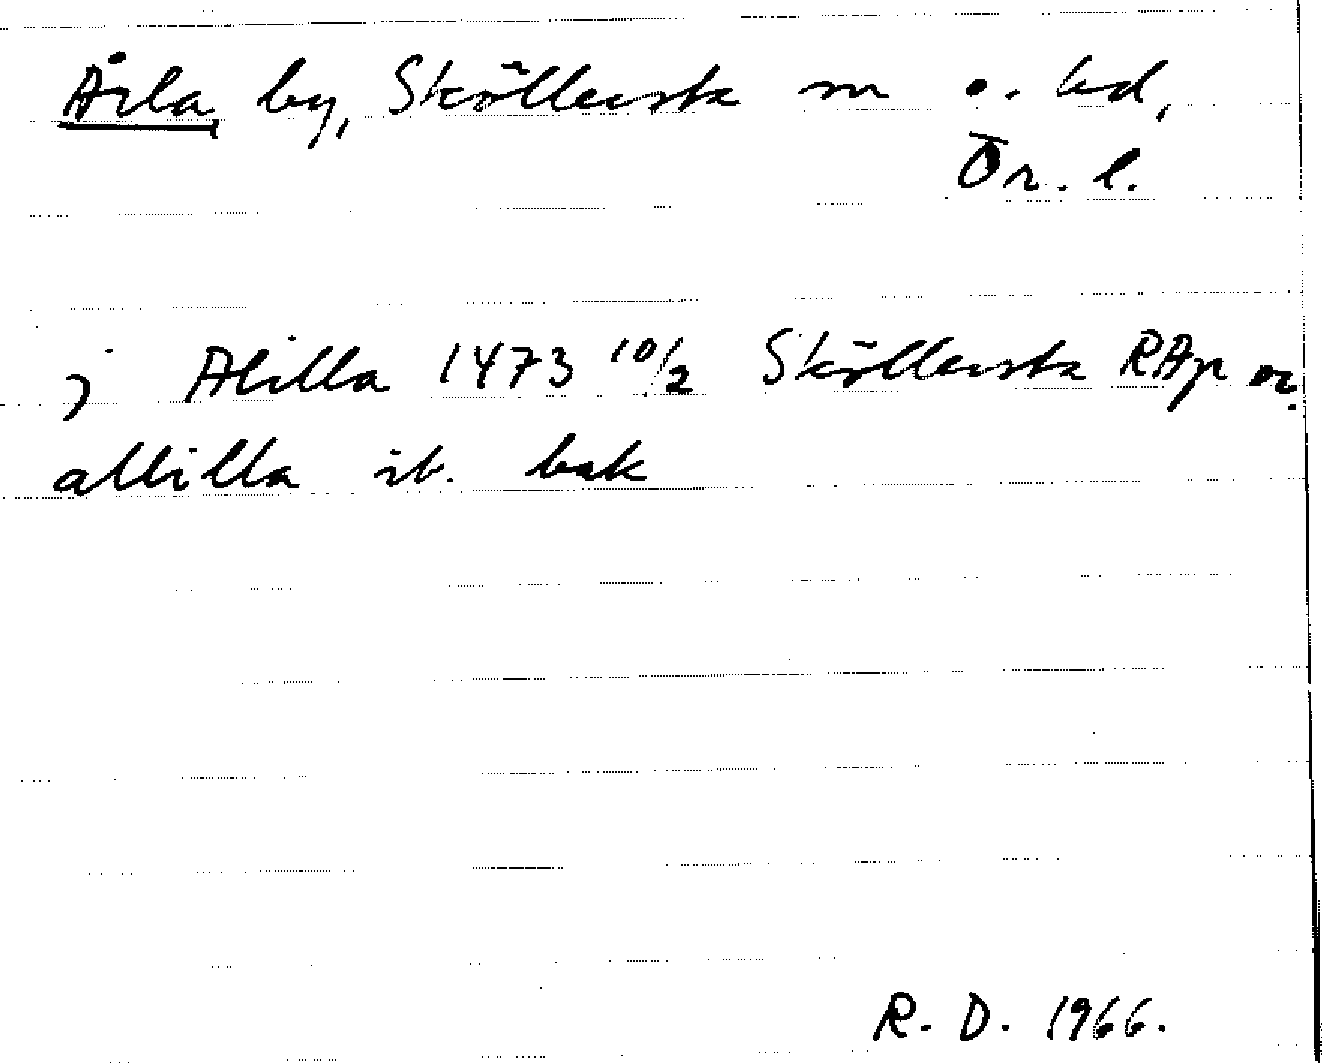 Årla by, Sköllersta sn o. hd,
Ör. l.
j Alilla 1473 10/2 Sköllersta RAp or.
allilla ib. bak
R. D. 1966.